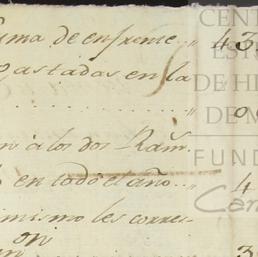 uma de enfrente. " 43
Gastadas en la
. . . . . . . . . . . . . . "
n à los dos Ram.
en todo el año.. " 4
imismo les corres-
on
CENT
EST
DE H
DE M
FUND
Can